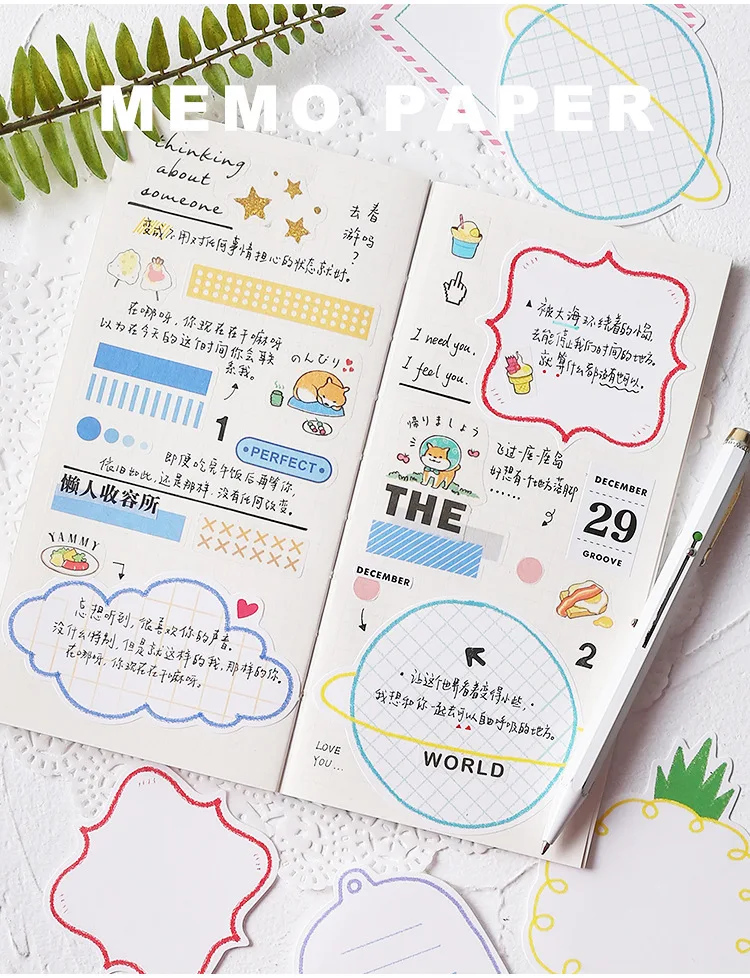 MEMO PAPER
thinking
about
someone
去春
游吗
?
变成不用对任何事情担心的状态就好。
在哪呀,你现在在干嘛呀
以为在今天的这个时间你会联
系我。
のんびり
1
PERFECT
即使吃完午饭后再等你,
依旧如此,还是那样,没有任何改变。
懒人收容所
YAMMY
忘想听到,很喜欢你的声音。
没什么特别,但是就这样的我,那样的你。
在哪呀,你现在在干嘛呀。
I need you.
I feel you.
被大海环绕着的小岛
去能停止我们时间的地方。
就算什么都没有也可以。
帰りましょう
飞过一座座岛
好想有个地方落脚
......
THE
DECEMBER
29
GROOVE
DECEMBER
2
让这个世界看着变得小些,
我想和你一起去可以自由呼吸的地方。
WORLD
LOVE
YOU...